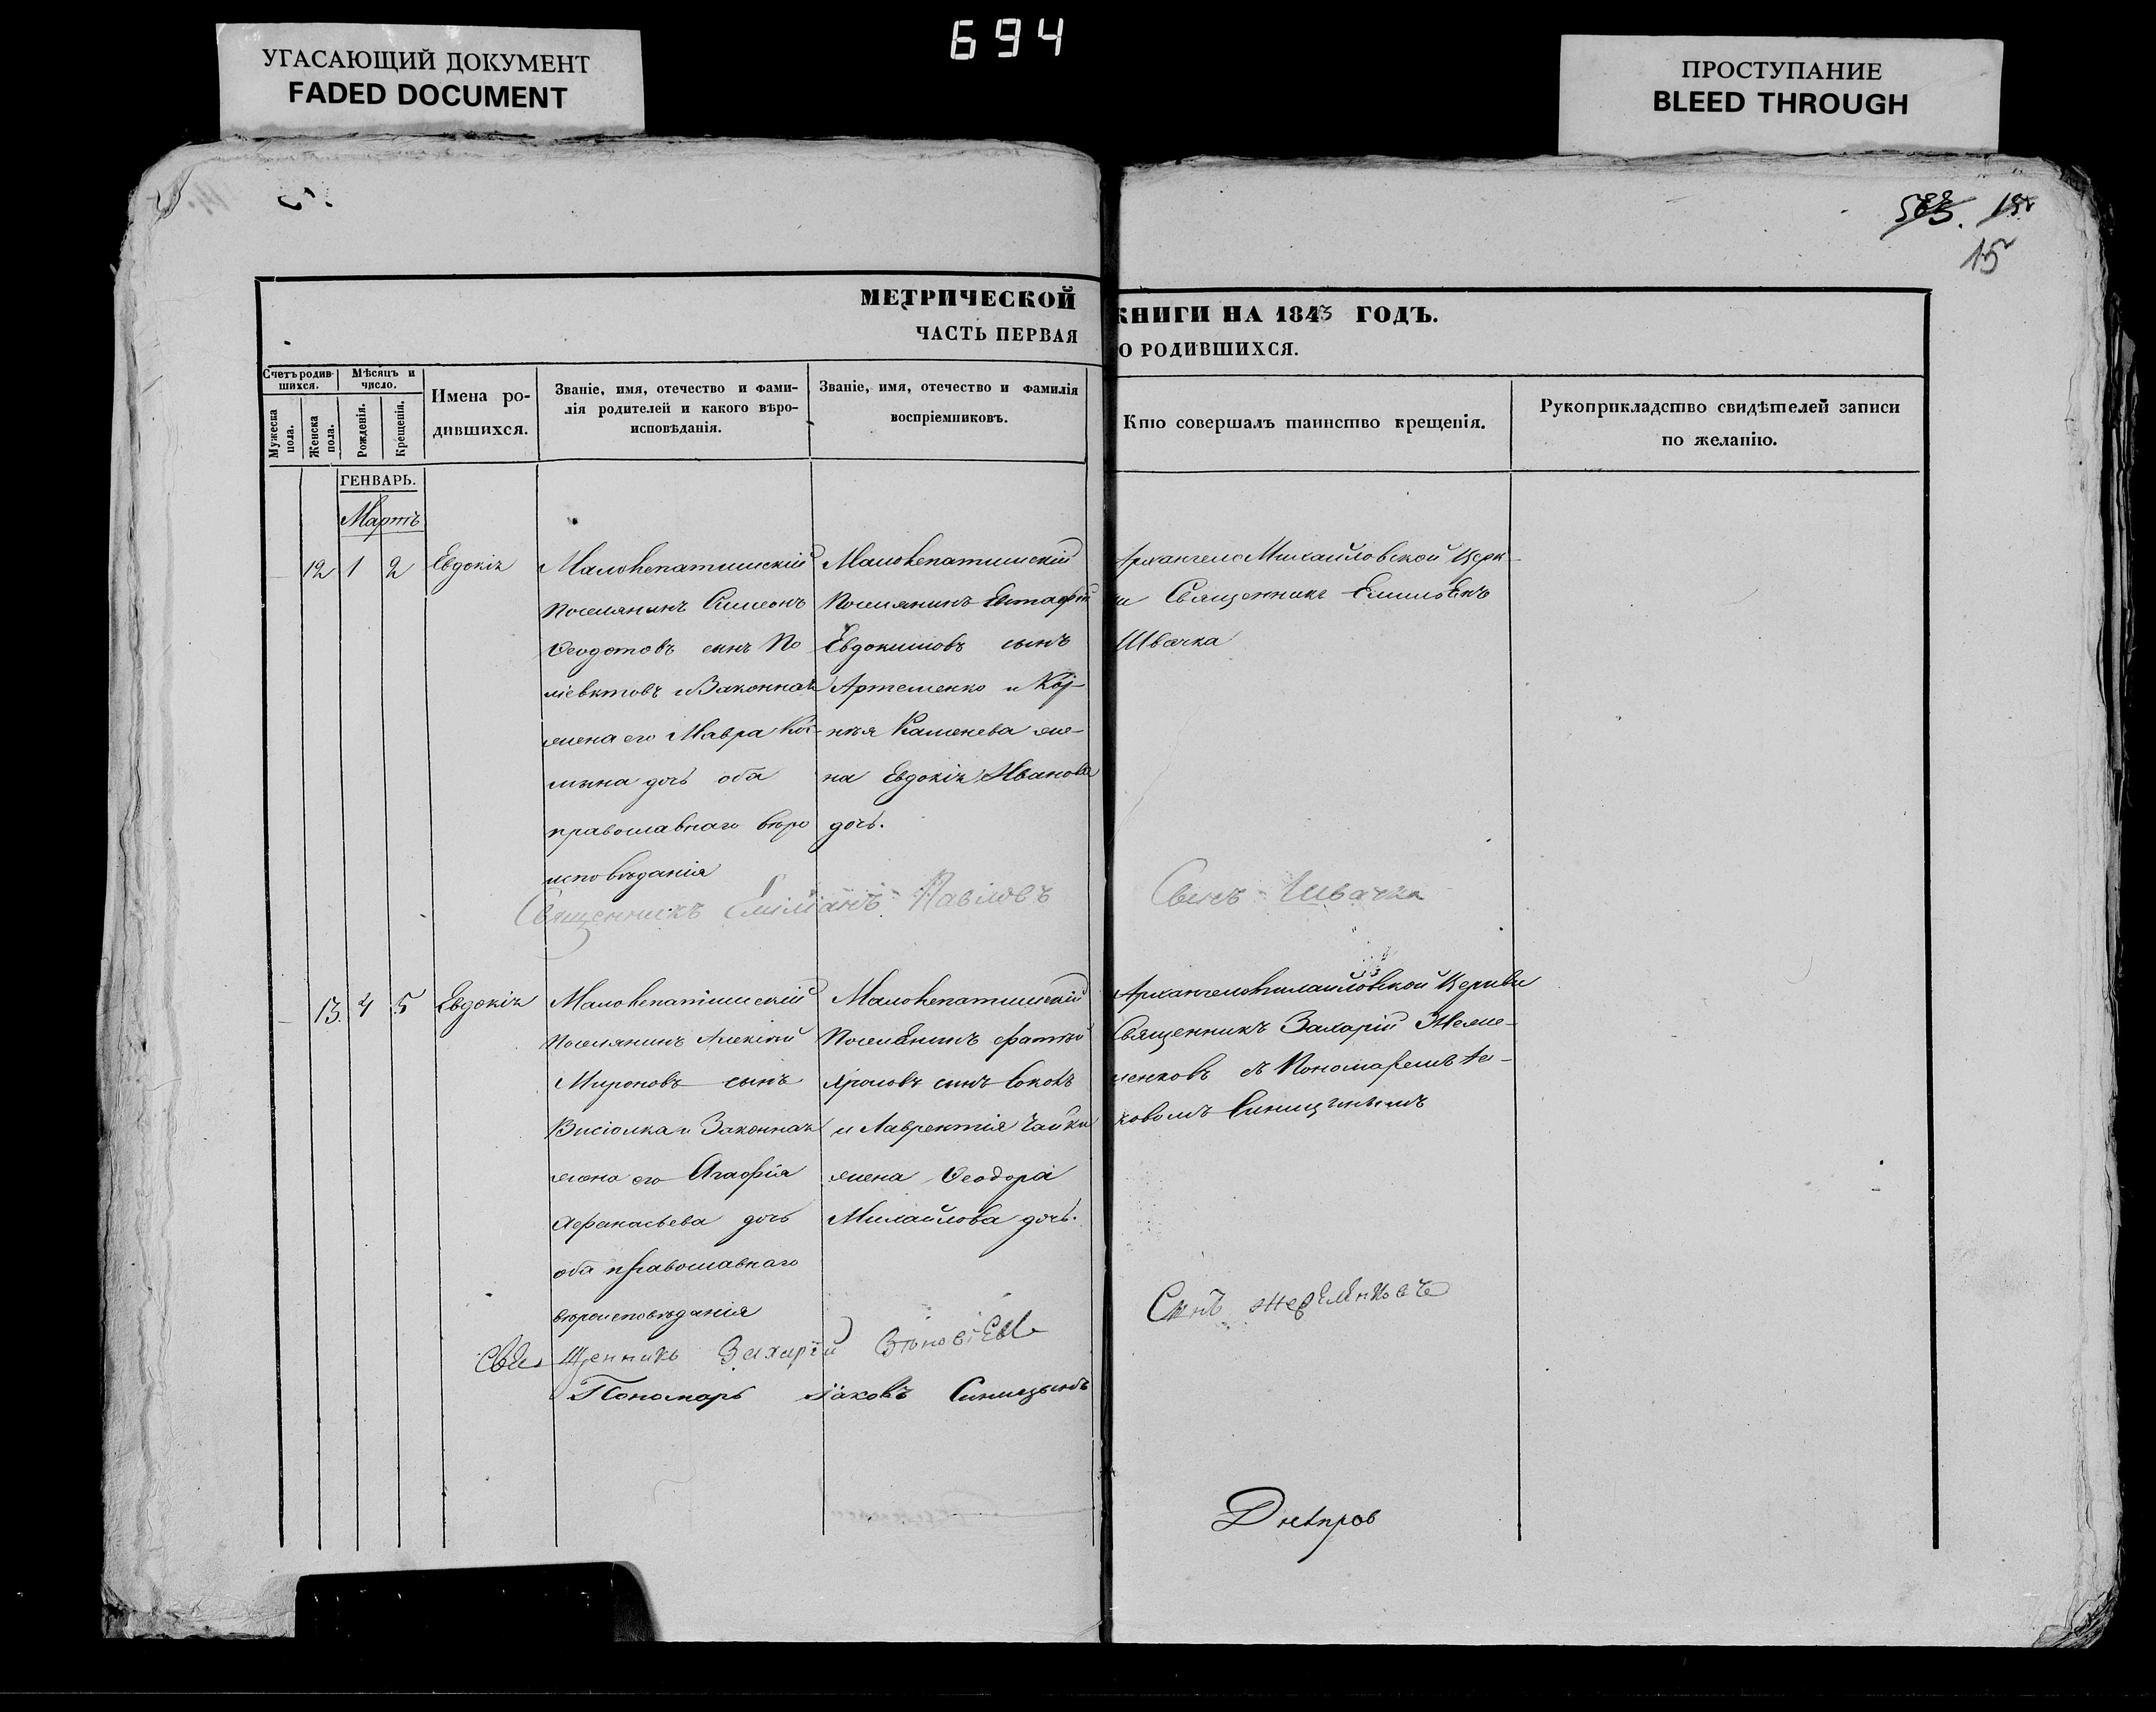 694
УГАСАЮЩИЙ ДОКУМЕНТ
FADED DOCUMENT
ПРОСТУПАНИЕ
BLEED THROUGH
15
МЕТРИЧЕСКОЙ КНИГИ НА 1843 ГОДЪ.
ЧАСТЬ ПЕРВАЯ О РОДИВШИХСЯ.
Счетъ родив-
шихся.
Мужеска
пола.
Женска
пола.
Мѣсяцъ и
число.
Рожденія.
Крещенія.
Имена ро-
дившихся.
Званіе, имя, отечество и фами-
лія родителей и какого вѣро-
исповѣданія.
Званіе, имя, отечество и фамилія
воспріемниковъ.
Кто совершалъ таинство крещенія.
Рукоприкладство свидѣтелей записи
по желанію.
ГЕНВАРЬ.
Мартъ
12 1 2 Евдокія
Поселянинъ Симеонъ
Ѳеодотовъ сынъ По
и Законная
жена его Мавра Кос-
мина дочь оба
православнаго вѣро
исповѣданія
Поселянинъ Евстафій
Евдокимовъ сынъ
Артеменко и Кор-
нѣя Каменева же-
на Евдокія Иванова
дочь.
Архангело Михайловской Церк-
ви Священникъ
Швачка
Священникъ Павловъ Сынъ Швачка
13. 4 5 Евдокія
Поселянинъ Алексѣй
Мироновъ сынъ
и Законная
жена его Агафія
Афанасьева дочь
оба православнаго
вѣроисповѣданія
Поселянинъ Фатѣй
сынъ Соколъ
и Лаврентія Чайки
жена Ѳеодора
Михайлова дочь.
Архангеломихайловской Церкви
Священникъ Захарій Жеме-
ленковъ съ Пономаремъ Іа-
ковомъ Синицынымъ
Священникъ Захарій Сынъ
Пономарь Іаковъ Синицынъ
Днепров